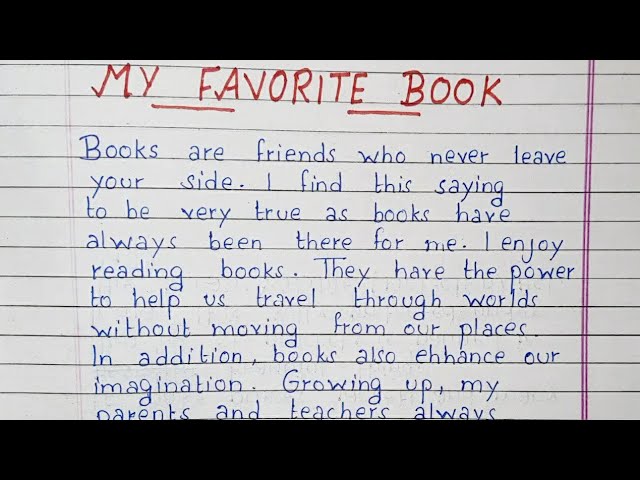 MY FAVORITE BOOK
Books are friends who never leave
your side. I find this saying
to be very true as books have
always been there for me. I enjoy
reading books. They have the power
to help us travel through worlds
without moving from our places.
In addition, books also ehhance our
imagination. Growing up, my
parents and teachers always